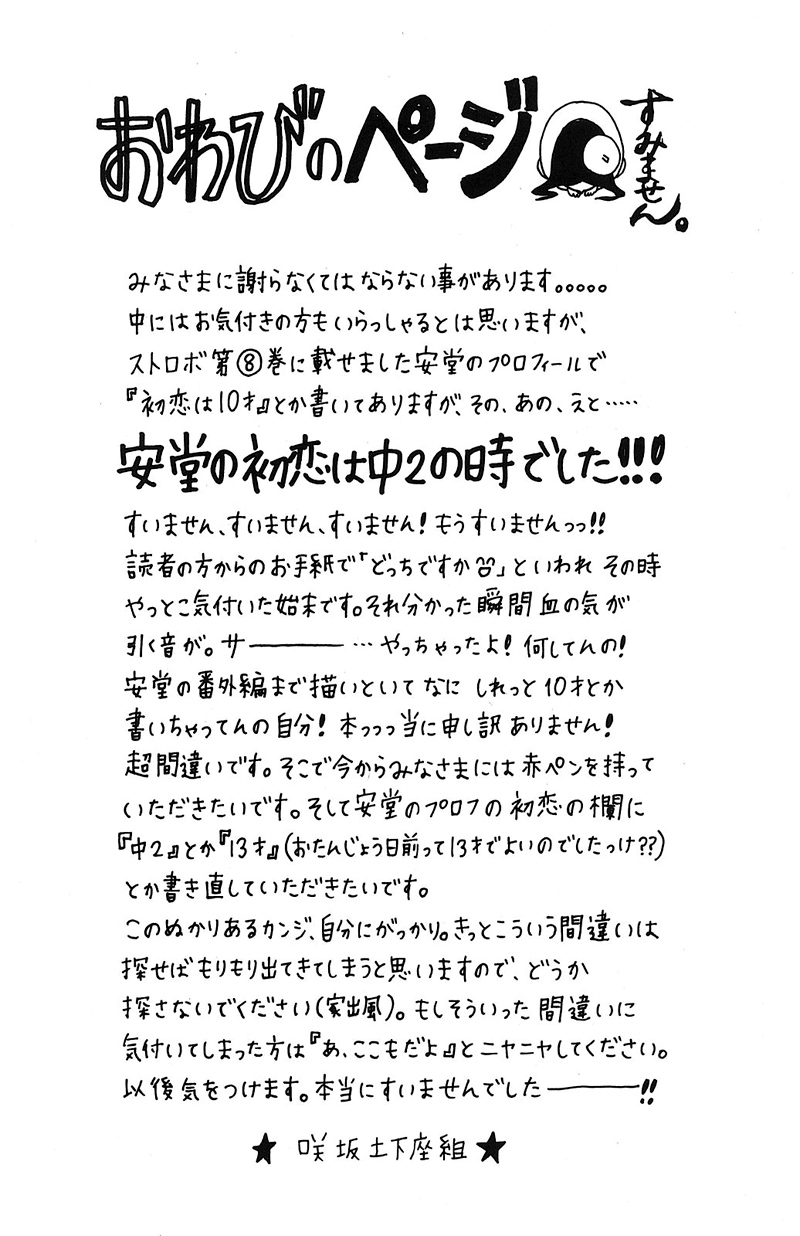 おわびのページ
すみません。
みなさまに謝らなくてはならない事があります。。。。。
中にはお気付きの方もいらっしゃるとは思いますが、
ストロボ第⑧巻に載せました安堂のプロフィールで
『初恋は10才』とか書いてありますが、その、あの、えと‥‥‥
安堂の初恋は中2の時でした!!!
すいません、すいません、すいません!もうすいませんっっ!!
読者の方からのお手紙で「どっちですか」といわれ その時
やっとこ気付いた始末です。それ分かった瞬間血の気が
引く音が。サ――――…やっちゃったよ!何してんの!
安堂の番外編まで描いといてなに しれっと10才とか
書いちゃってんの自分!本っっっ当に申し訳ありません!
超間違いです。そこで今からみなさまには赤ペンを持って
いただきたいです。そして安堂のプロフの初恋の欄に
『中2』とか『13才』(おたんじょう日前って13才でよいのでしたっけ??)
とか書き直していただきたいです。
このぬかりあるカンジ、自分にがっかり。きっとこういう間違いは
探せばもりもり出てきてしまうと思いますので、どうか
探さないでください(家出風)。もしそういった間違いに
気付いてしまった方は『あ、ここもだよ』とニヤニヤしてください。
以後気をつけます。本当にすいませんでした――――!!
★ 咲坂土下座組 ★